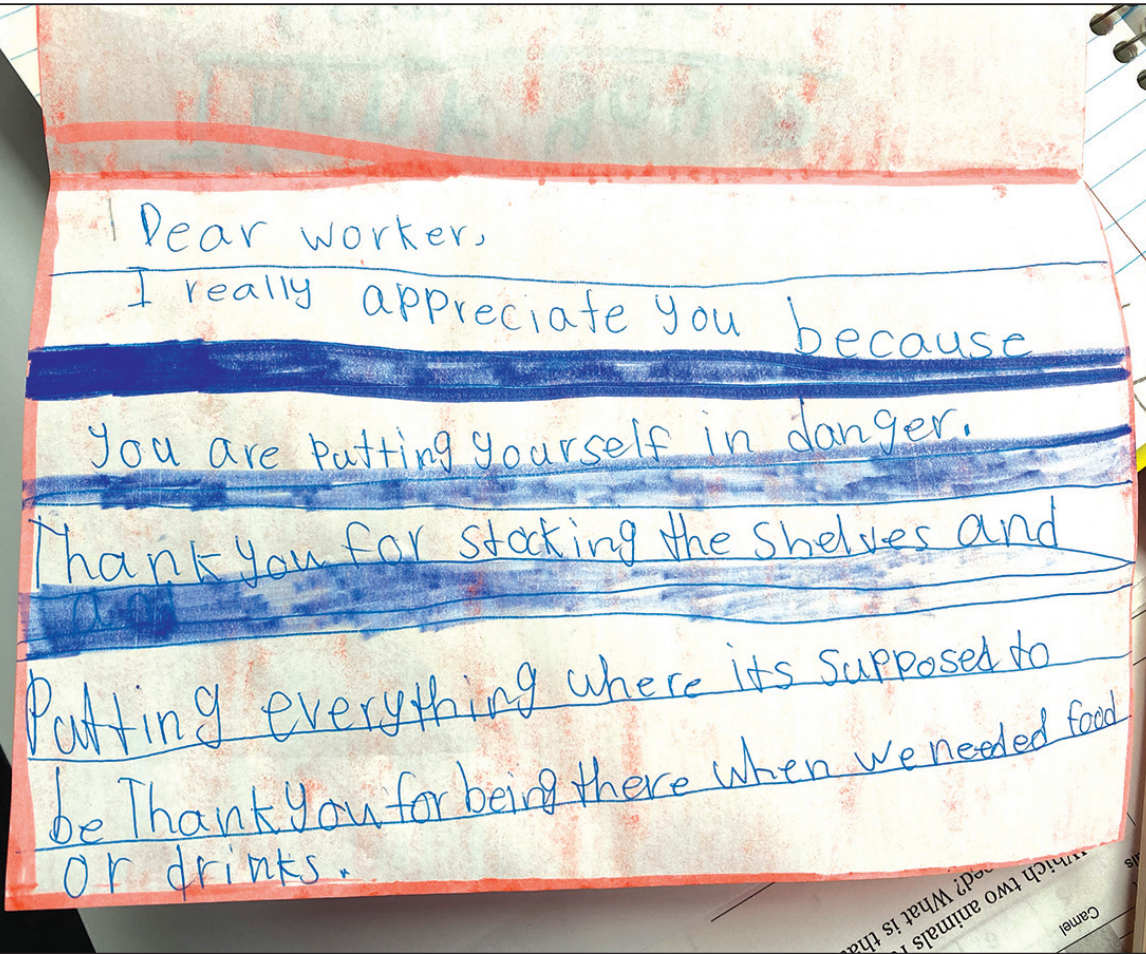 Dear worker,
I really appreciate you because
you are putting yourself in danger.
Thank you for stocking the shelves and
Putting everything where its supposed to
be Thank you for being there when we needed food
or drinks.
Which two animals
What is tha
Camel